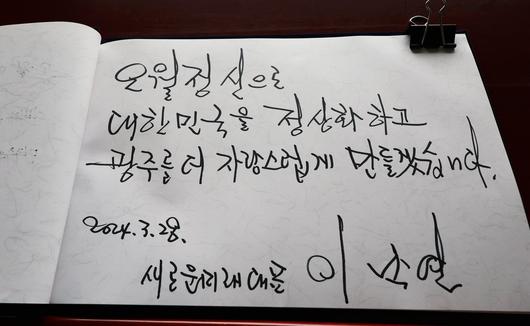 오월정신으로
대한민국을 정상화하고
광주를 더 자랑스럽게 만들겠습니다.
2024.3.28.
새로운미래 대표 이낙연